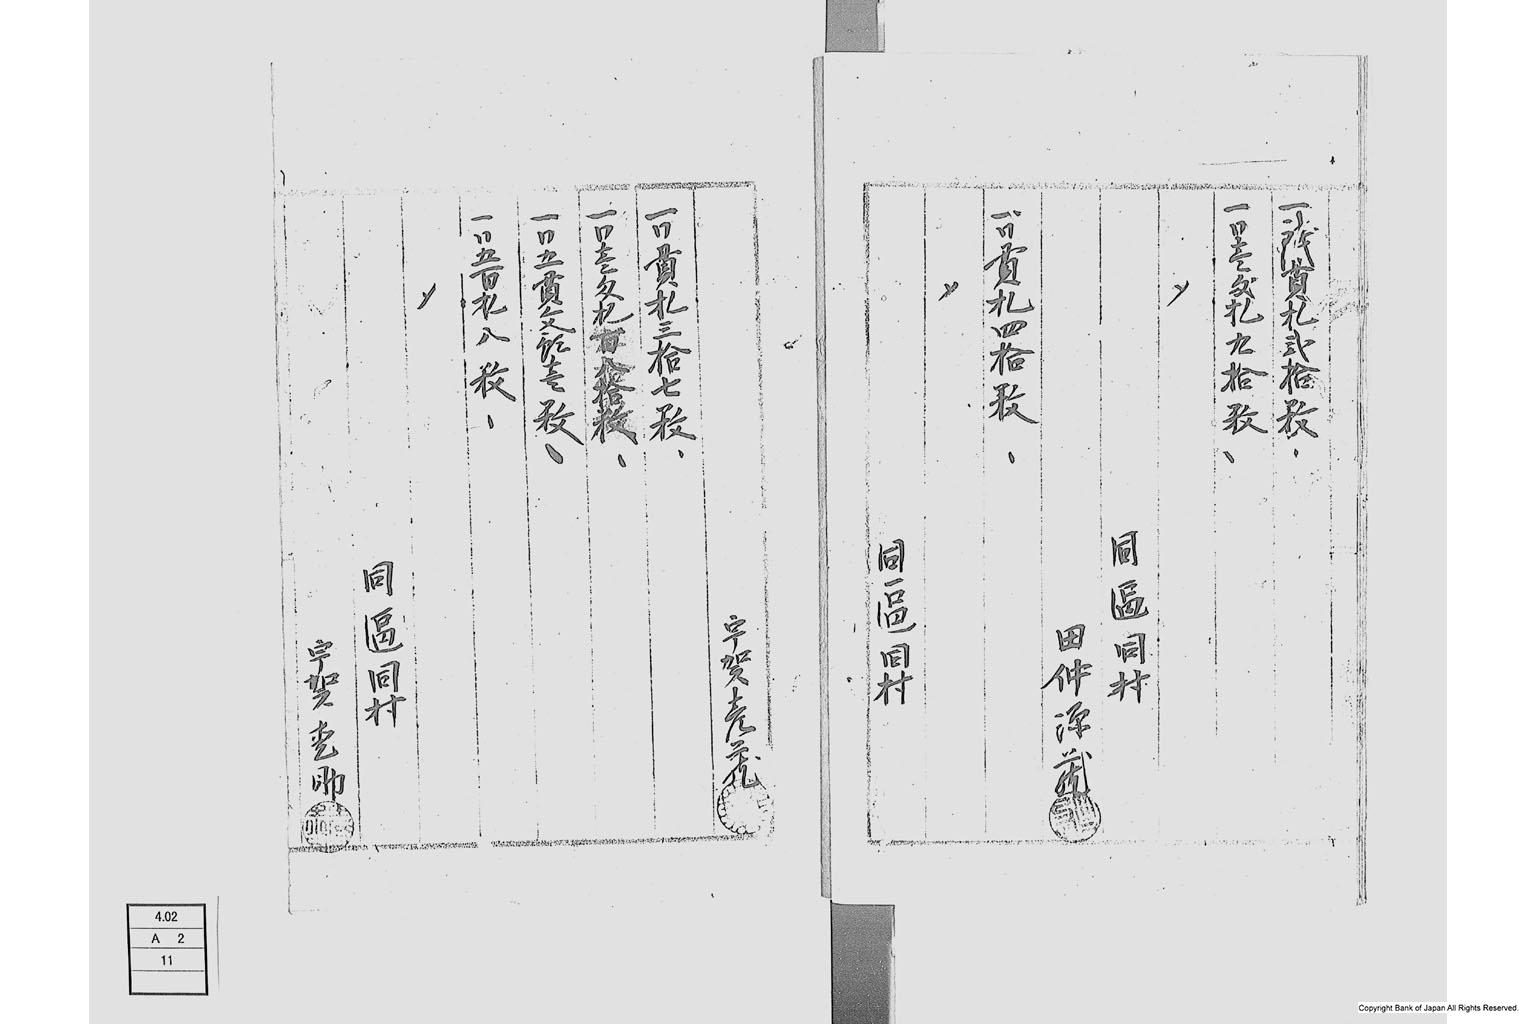 一貫札弐拾枚、
一同壱匁札九拾枚、
〆
同區同村
田仲源蔵
一同貫札四拾枚、
〆
同區同村
宇賀彦蔵
一同貫札三拾七枚、
一同壱匁札
一同五貫文
壱枚、
一同五百札八枚、
〆
同區同村
宇賀
4.02
A 2
11
Copyright Bank of Japan All Rights Reserved.